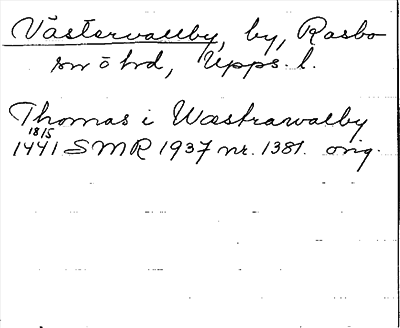 Västervallby, by, Rasbo
sn o hd, Upps. l.
Thomas i Wæstrawalby
18/5
1441 SMR 1937 nr. 1381. orig.